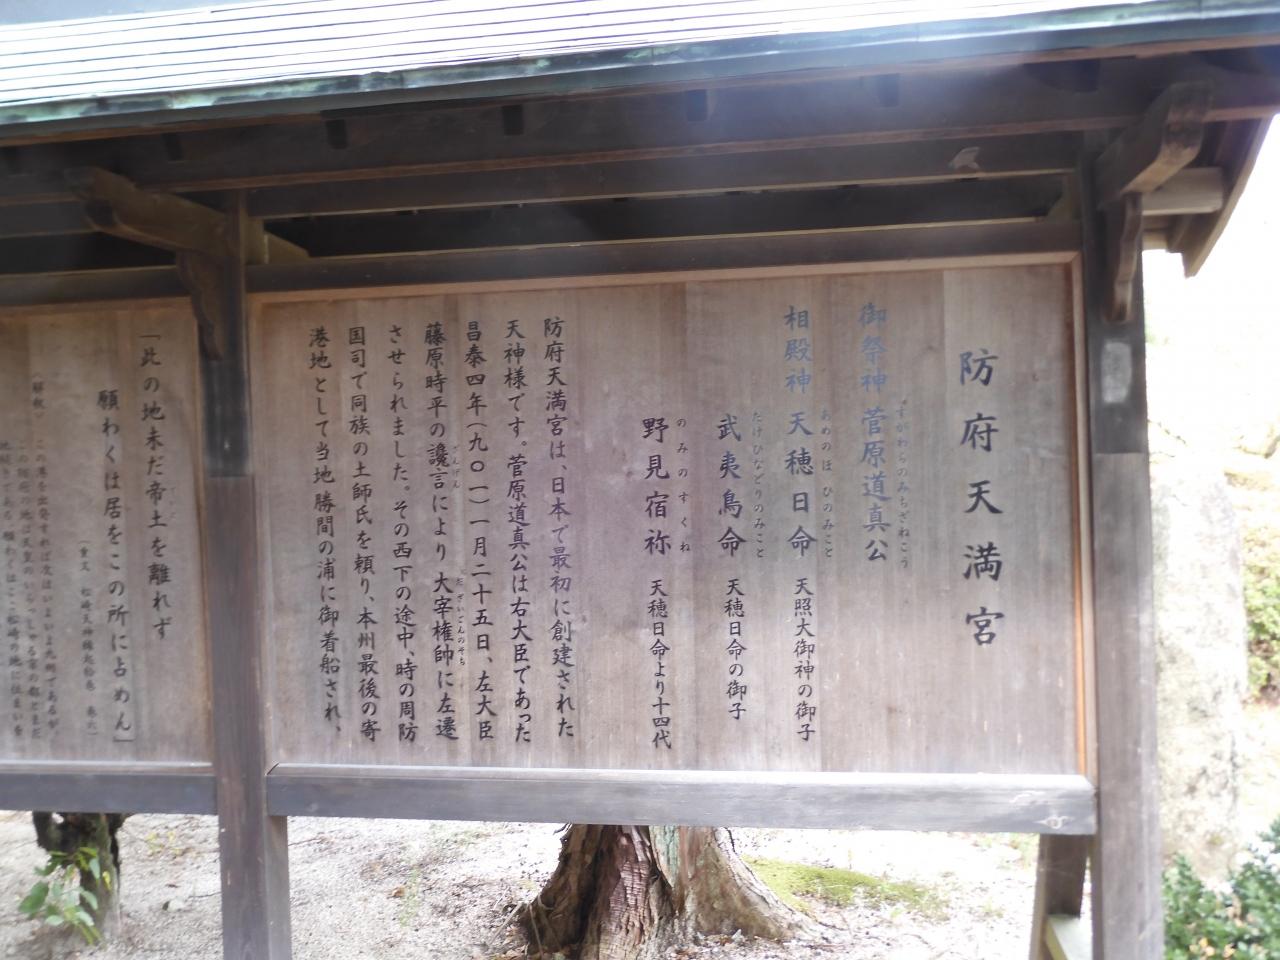 防府天満宮
御祭神 菅原道真公
すがわらのみちざねこう
相殿神 天穂日命 天照大御神の御子
あめのほひのみこと
武夷鳥命 天穂日命の御子
たけひなどりのみこと
野見宿祢 天穂日命より十四代
のみのすくね
防府天満宮は、日本で最初に創建された
天神様です。菅原道真公は右大臣であった
昌泰四年(九〇一)一月二十五日、左大臣
藤原時平の讒言により 大宰権帥に左遷
ざんげん だざいごんのそち
させられました。その西下の途中、時の周防
国司で同族の土師氏を頼り、本州最後の寄
港地として当地勝間の浦に御着船され、
「此の地未だ帝土を離れず
願わくは居をこの所に占めん」
(重文 松崎天神縁起絵巻 巻六)
〈解釈〉 この港を出発すれば次はいよいよ九州であるが、